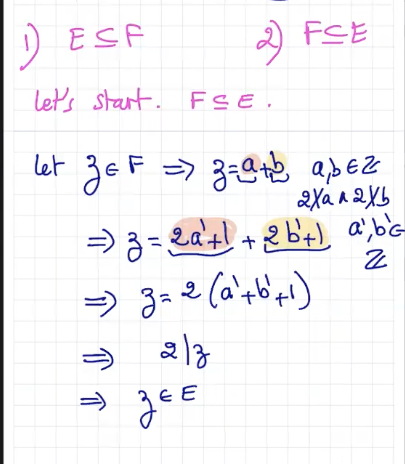 1) E ⊆ F 2) F ⊆ E
let's start. F ⊆ E.
let z ∈ F ⇒ z = a + b a,b ∈ ℤ
2∤a ∧ 2∤b
⇒ z = 2a'+1 + 2b'+1 a',b' ∈
ℤ
⇒ z = 2(a'+b'+1)
⇒ 2|z
⇒ z ∈ E